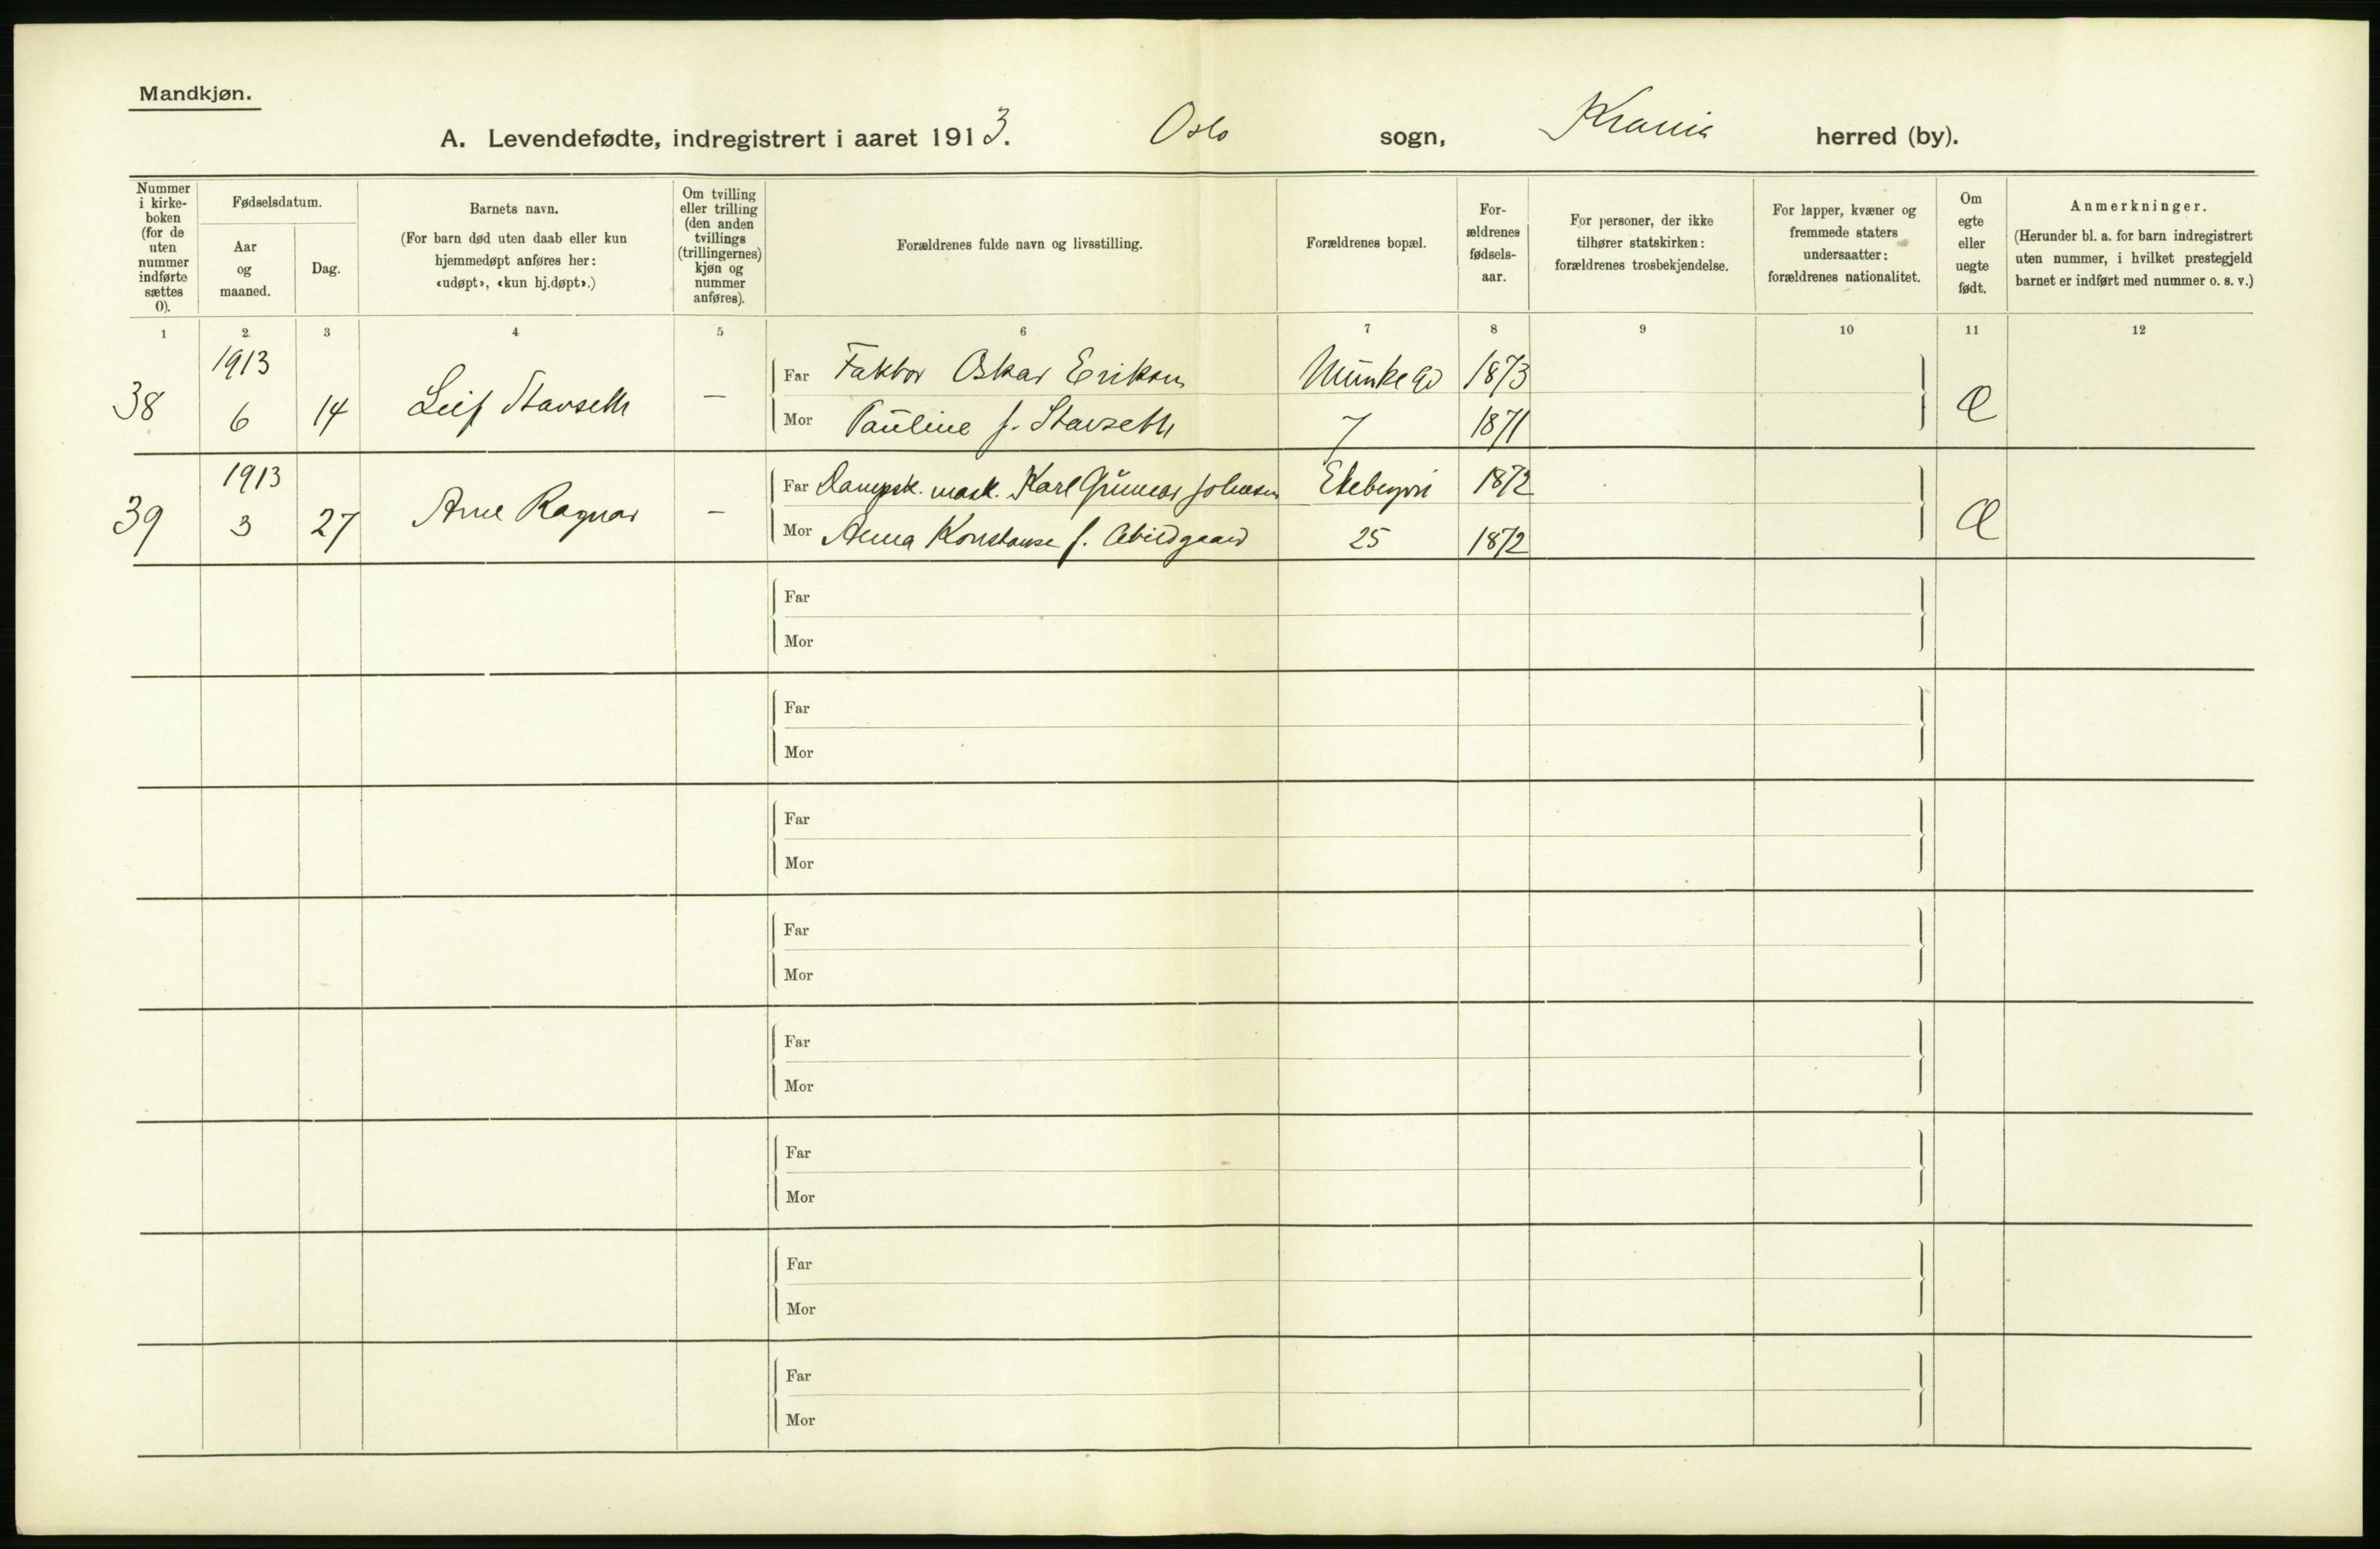 Mandkjøn.
A. Levendefødte, indregistrert i aaret 1913. Oslo sogn, Krania herred (by).
Nummer i kirke-boken (for de uten nummer indførte sættes 0).
Fødselsdatum.
Aar og maaned.
Dag.
Barnets navn.
(For barn død uten daab eller kun hjemmedøpt anføres her: «udøpt», «kun hj.døpt».)
Om tvilling eller trilling (den anden tvillings (trillingernes) kjøn og nummer anføres).
Forældrenes fulde navn og livsstilling.
Forældrenes bopæl.
For-ældrenes fødsels-aar.
For personer, der ikke tilhører statskirken: forældrenes trosbekjendelse.
For lapper, kvæner og fremmede staters undersaatter: forældrenes nationalitet.
Om egte eller uegte født.
Anmerkninger.
(Herunder bl. a. for barn indregistrert uten nummer, i hvilket prestegjeld barnet er indført med nummer o. s. v.)
1 2 3 4 5 6 7 8 9 10 11 12
1913 Far Faktor Oskar Eriksen Munkegd 1873
38 6 14 Leif Stavseth — Mor Pauline f. Stavseth 7 1871 Æ
1913 Far Dampsk. mask. Karl Gunnar Johnsen Ekebergvei 1872
39 3 27 Arne Ragnar — Mor Anna Konstanse f. Abildgaard 25 1872 Æ
Far
Mor
Far
Mor
Far
Mor
Far
Mor
Far
Mor
Far
Mor
Far
Mor
Far
Mor